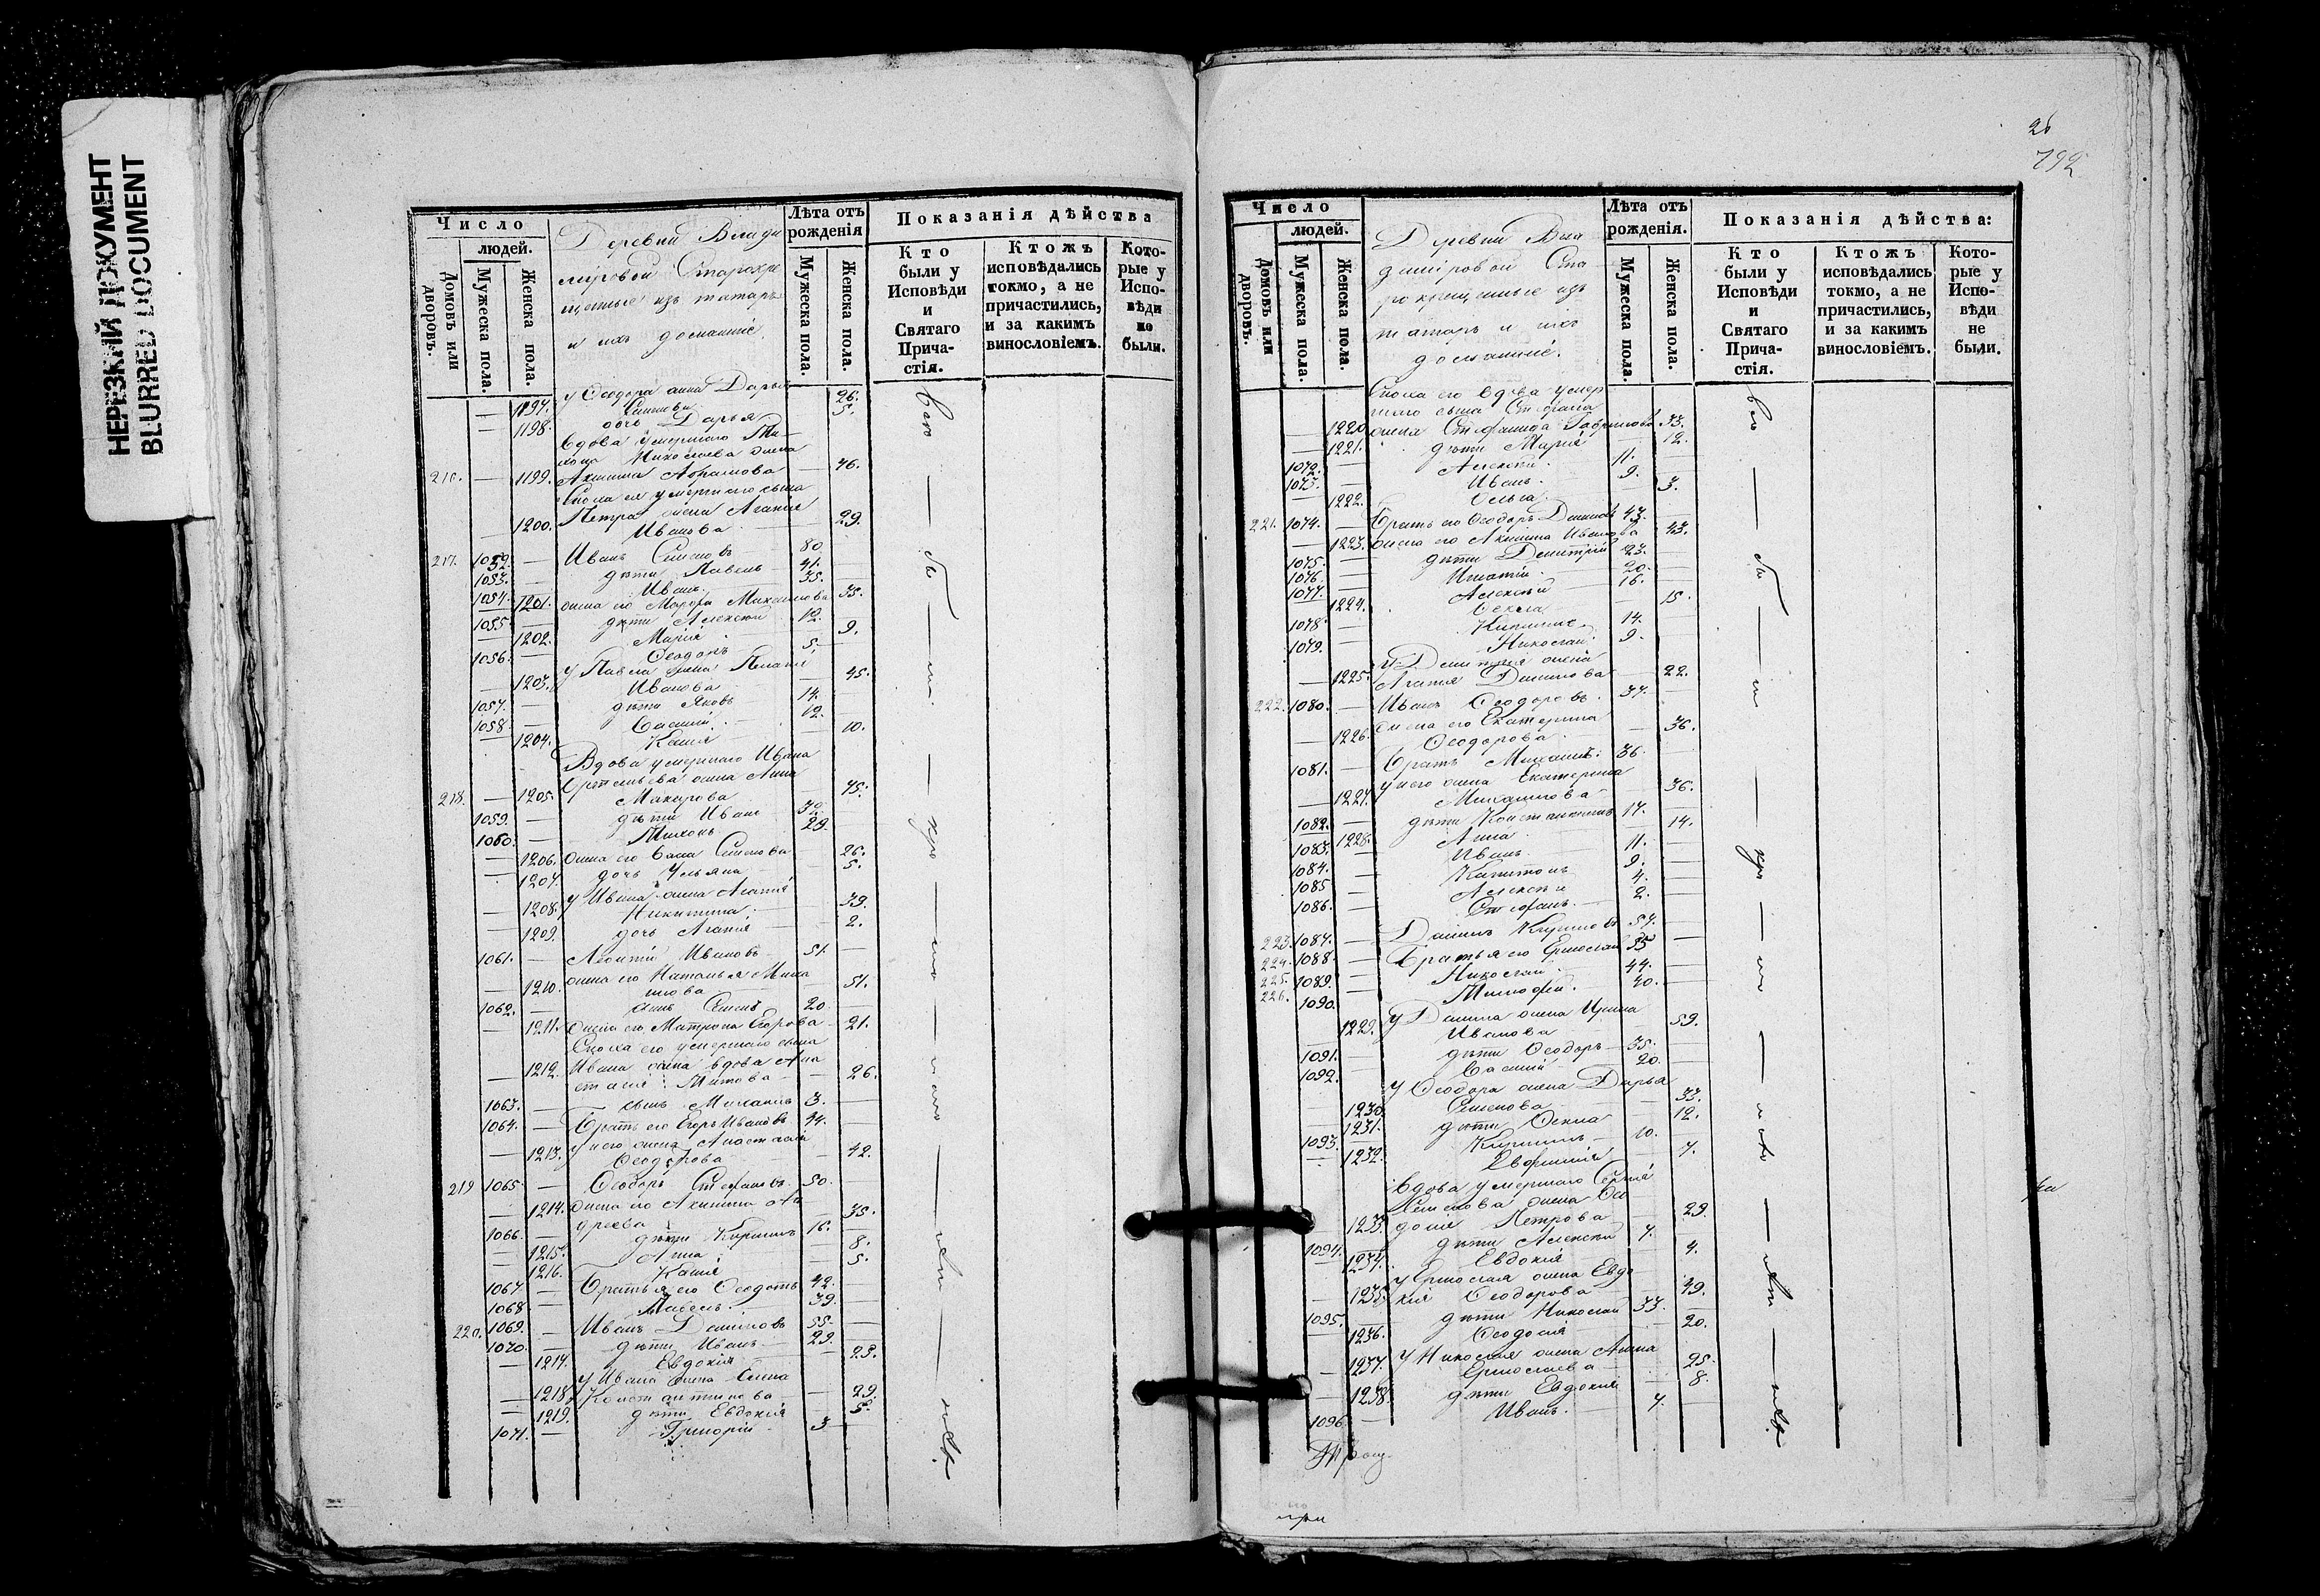 НЕРЕЗКИЙ ДОКУМЕНТ
BLURRED DOCUMENT
Число
людей.
Домовъ или дворовъ.
Мужеска пола.
Женска пола.
Деревни Влади
міровой Старокре
щеные изъ татаръ
и ихъ домашніе.
Лѣта отъ рожденія
Мужеска пола.
Женска пола.
Показанія дѣйства
Кто были у Исповѣди и Святаго Причастія.
Ктожъ исповѣдались токмо, а не причастились, и за какимъ винословіемъ.
Которые у Исповѣди не были.
— 1197. у Ѳеодора жена Дарья
Семенова 26.
— 1198. дочь Дарья 5.
Вдова умершаго Ти
хона Николаева жена
216. — 1199. Акилина Абрамова — 46.
Сноха ея умершаго сына
Петра жена Агапія
1200. Иванова — 29.
217. 1052. — Иванъ Семеновъ 80
1053. — дѣти Павелъ 41.
1054. Иванъ 35.
1201. жена его Марѳа Михаилова 35.
1055. — дѣти Алексѣй 12.
— 1202. Марія 9.
1056. — Ѳеодоръ 5.
у Павла жена Пелагія
— 1203. Иванова — 45.
1057. — дѣти Яковъ 14.
1058. — Василій 12.
— 1204. Ксенія 10.
Вдова умершаго Ивана
жена Анна
218. — 1205. Макарова 45.
1059. — дѣти Иванъ 32.
1060. — Тихонъ 29.
— 1206. жена его Васса Семенова 26.
— 1207. дочь Ульяна 5.
у Ивана жена Агапія
— 1208. Никитина 39.
— 1209. дочь Агапія 2.
1061. — Леонтій Ивановъ 51. —
жена его Наталья Миха
— 1210. илова 51.
1062. — сынъ Семенъ 20
— 1211. жена его Матрона Егорова 21.
Сноха его умершаго сына
1212. Ивана жена вдова Ана
стасія Титова 26.
1063. — сынъ Михаилъ 3. —
1064. — Братъ его Егоръ Ивановъ 44.
у него жена Анастасія
— 1213. Ѳеодорова — 42.
219 1065 — Ѳеодоръ Стефановъ 50.
— 1214. жена его Акилина Ан
дреева 35.
1066. — дѣти Кириллъ 16.
— 1215. Анна 8.
— 1216. Ксенія 5.
1067 — Братья его Ѳеодотъ 42.
1068 — Павелъ 39.
220. 1069. — Иванъ Даниловъ 55.
1070. — дѣти Иванъ 29.
— 1217. Евдокія 23.
у Ивана жена Елена
— 1218. Константинова — 29.
— 1219. дѣти Евдокія 5.
1071. — Григорій 3
26
792
Число
людей.
Домовъ или дворовъ.
Мужеска пола.
Женска пола.
Деревни Вла
диміровой Ста
рокрещеные изъ
татаръ и ихъ
домашніе.
Лѣта отъ рожденія.
Мужеска пола.
Женска пола.
Показанія дѣйства:
Кто были у Исповѣди и Святаго Причастія.
Ктожъ исповѣдались токмо, а не причастились, и за какимъ винословіемъ.
Которые у Исповѣди не были.
Сноха его вдова умер
шаго сына Стефана
— 1220 жена Стефанида Гаврилова 33.
— 1221. дѣти Марія 12.
1072. — Алексѣй 11.
1073. — Иванъ 9.
1222. Ольга 3.
221. 1074. — Братъ его Ѳеодоръ Даниловъ 43.
— 1223. жена его Акилина Иванова 43.
1075. — дѣти Димитрій 23.
1076. — Игнатій 20.
1077. — Алексѣй 16.
1224. Ѳекла 15.
1078 — Кириллъ 14.
1079. — Николай 9.
у Димитрія жена
— 1225. Агапія Данилова 22.
222. 1080. — Иванъ Ѳеодоровъ 37. —
жена его Екатерина
— 1226. Ѳеодорова 36.
1081. — Братъ Михаилъ 36.
у него жена Екатерина
— 1227. Михаилова 36.
1082. — дѣти Константинъ 17.
1228. Анна 14.
1083. Иванъ 11. —
1084. — Капитонъ 9. —
1085 — Алексѣй 4. —
1086. — Стефанъ 2. —
223. 1087. — Даниилъ Кирилловъ 57.
224. 1088 — Братья его Ермолай 55
225. 1089. — Николай 44.
226. 1090. — Тимоѳей 40. —
у Данила жена Ирина
— 1229. Иванова 59.
1091. — дѣти Ѳеодоръ 35.
1092. — Василій 20.
у Ѳеодора жена Дарья
— 1230. Семенова 33.
— 1231. дѣти Ѳекла 12.
1093. — Кириллъ 10.
1232. Евфимія 7.
Вдова умершаго Сергія
Семенова жена Ѳео
1233. досія Петрова 29.
1094. — дѣти Алексѣй 7.
1234. Евдокія 4.
у Ермолая жена Евдо
— 1235. кія Ѳеодорова — 49.
1095. — дѣти Николай 33.
1236. Ѳеодосія 20.
у Николая жена Анна
— 1237. Ермолаева 25.
— 1238. дѣти Евдокія 8.
1096 — Иванъ 4.